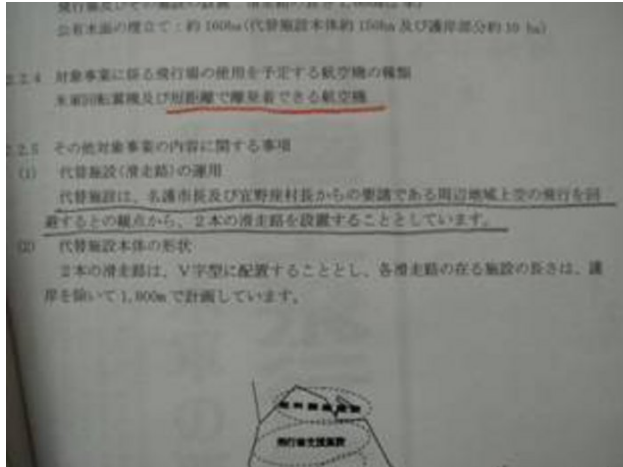 公有水面の埋立て：約 160ha(代替施設本体約 150ha 及び護岸部分約 10 ha)
2.2.4 対象事業に係る飛行場の使用を予定する航空機の種類
米軍回転翼機及び短距離で離発着できる航空機
2.2.5 その他対象事業の内容に関する事項
(1) 代替施設(滑走路)の運用
代替施設は、名護市長及び宜野座村長からの要請である周辺地域上空の飛行を回
避するとの観点から、２本の滑走路を設置することとしています。
(2) 代替施設本体の形状
２本の滑走路は、Ｖ字型に配置することとし、各滑走路の在る施設の長さは、護
岸を除いて 1,800m で計画しています。
飛行場支援施設